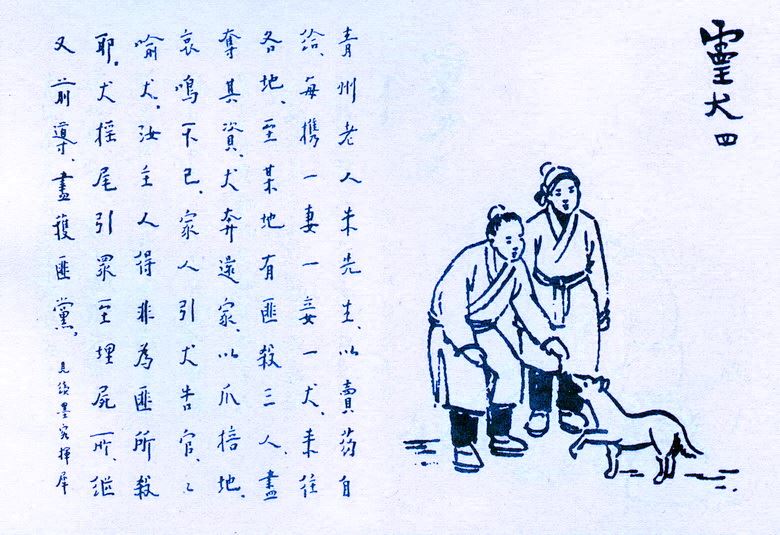 靈犬 四
青州老人朱先生、以賣药自
給、每携一妻一妾一犬、来往
各地、至某地有匪殺三人、盡
奪其資、犬奔還家、以爪掊地、
哀鳴不已、家人引犬告官、〻
喻犬、汝主人得非為匪所殺
耶、犬摇尾引眾至埋屍所、继
又前導、盡獲匪黨、 見續墨客揮犀